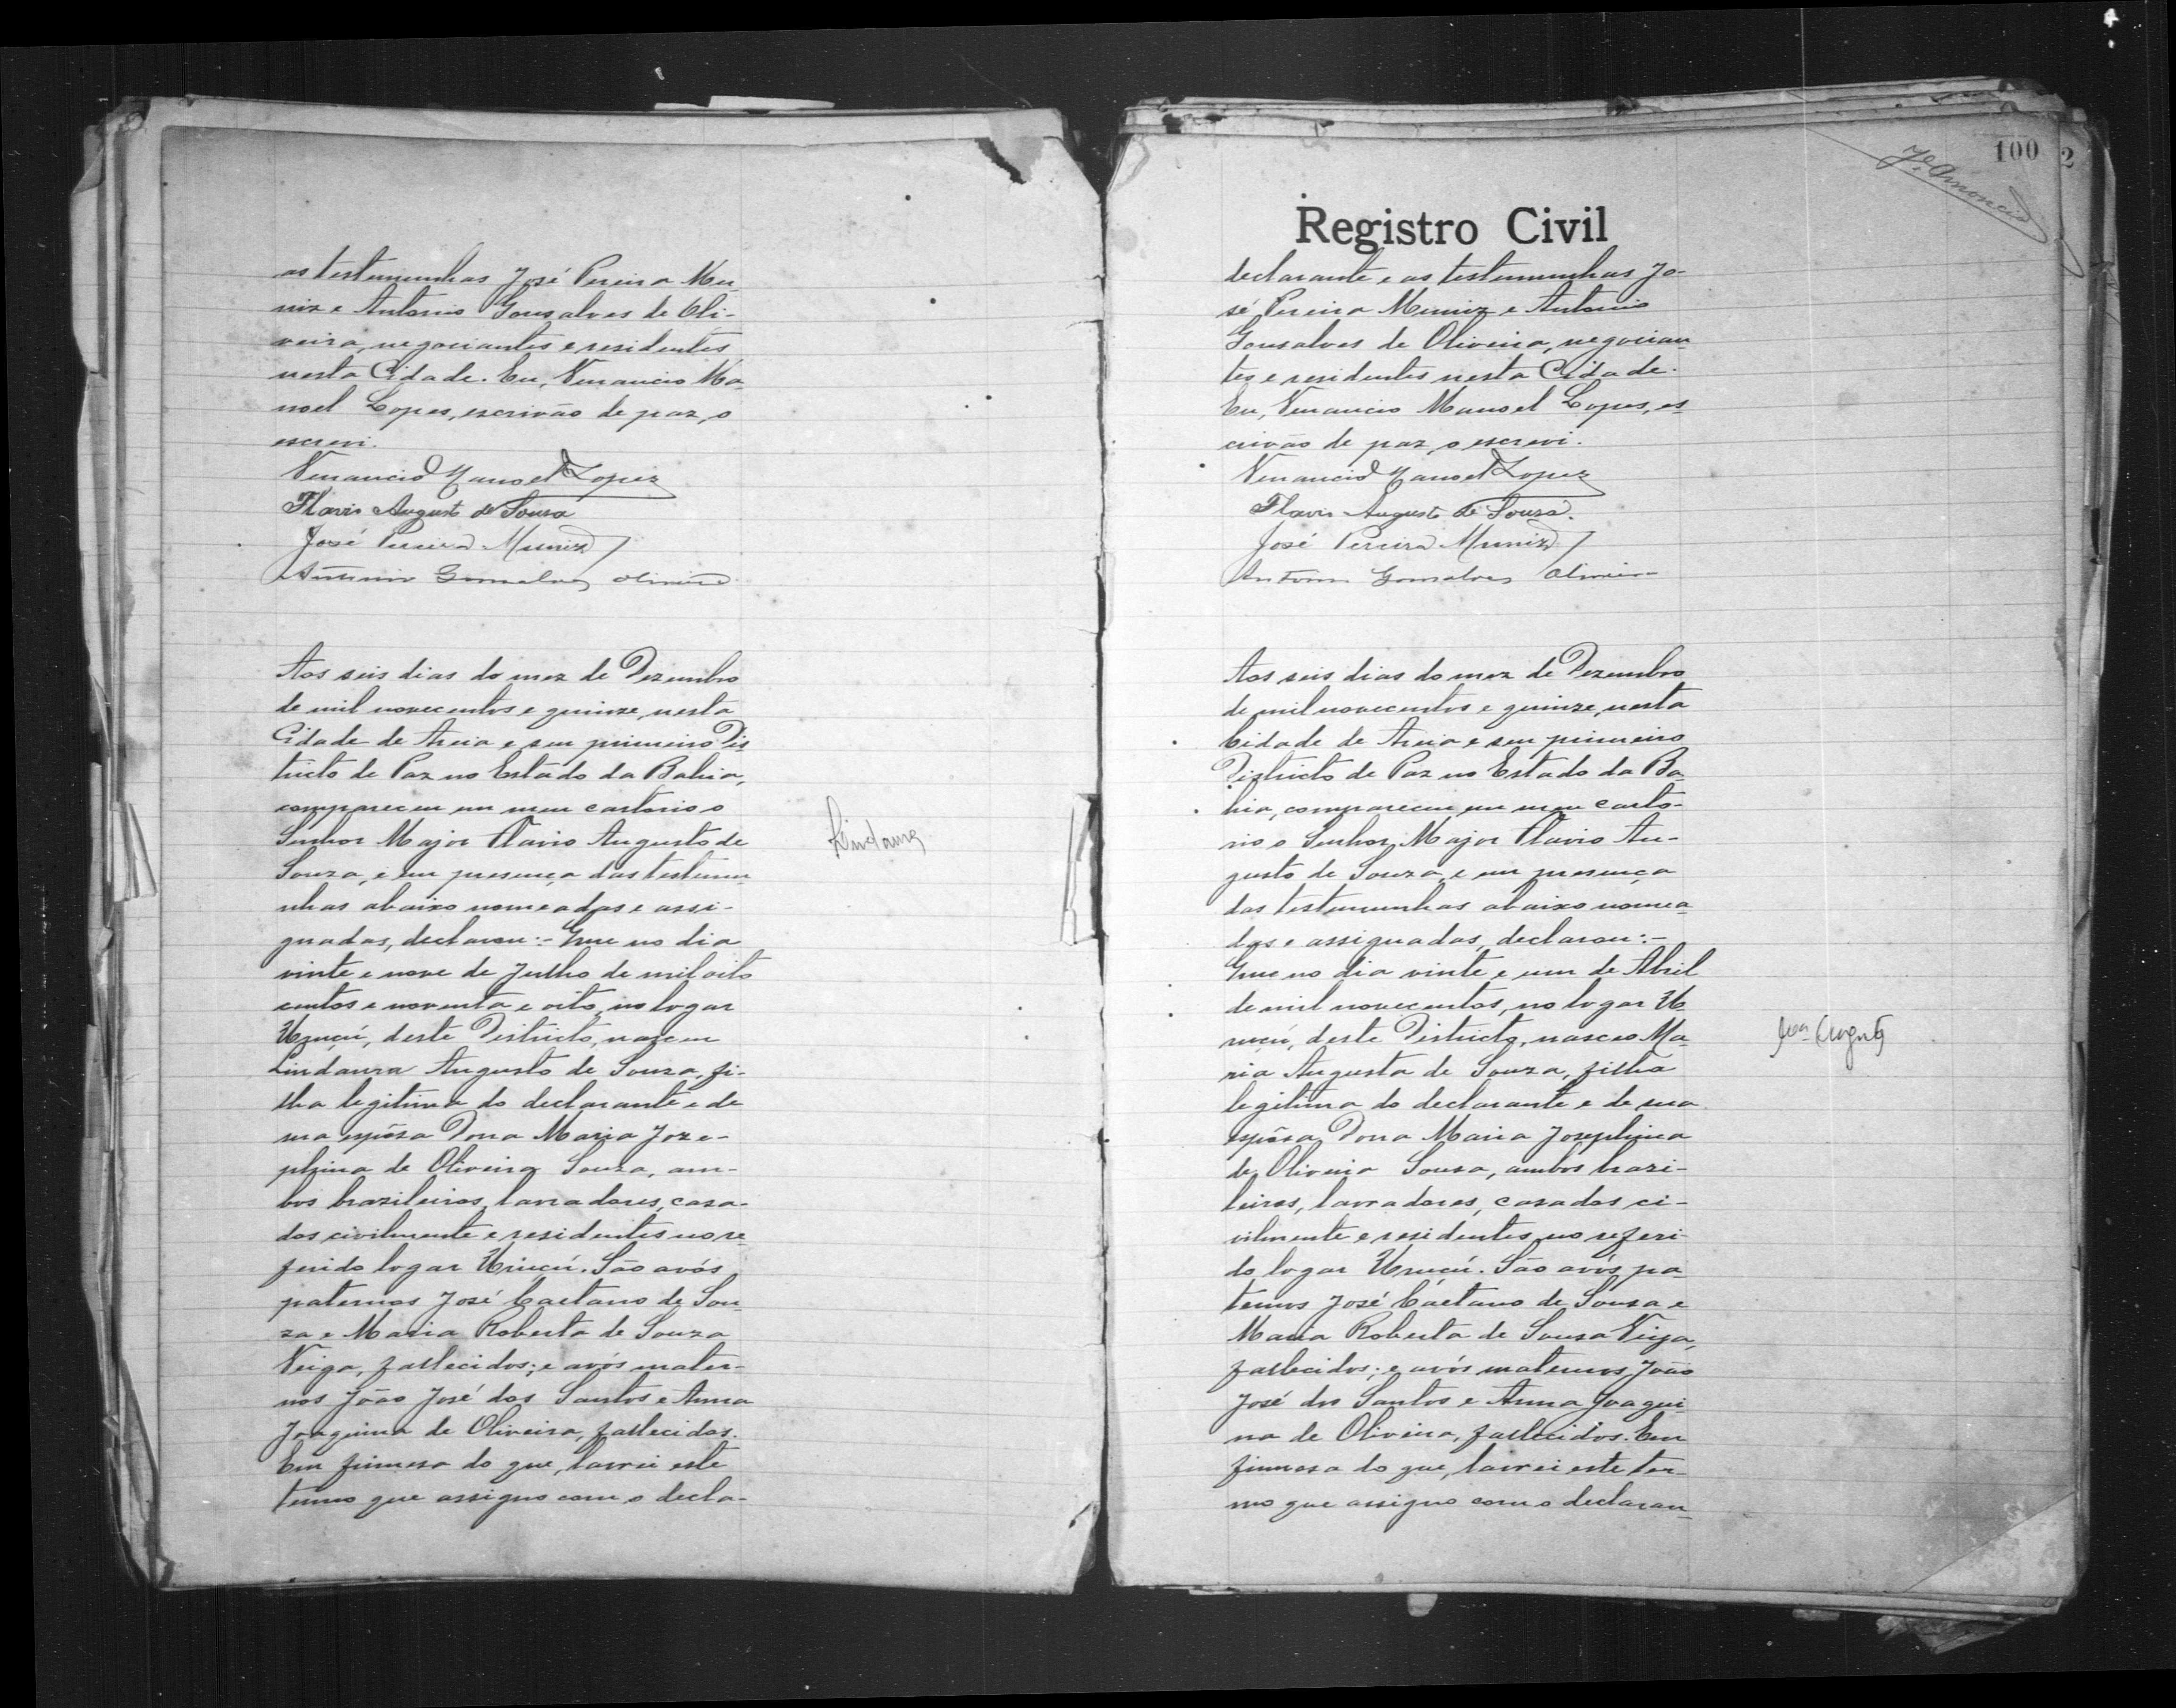 as testemunhas José Pereira Mu-
niz e Antonio Gonsalves de Oli-
veira, negociantes e residentes
nesta Cidade. Eu, Venancio Ma-
noel Lopes, escrivão de paz, o
escrevi.
Venancio Manoel Lopes
Flavio Augusto de Souza
José Pereira Muniz
Antonio Gonsalves Oliveira
Aos seis dias do mez de Dezembro
de mil novecentos e quinze, nesta
Cidade de Areia e seu primeiro Dis-
tricto de Paz no Estado da Bahia,
compareceu em meu cartorio o
Senhor Major Flavio Augusto de
Souza, e em presença das testemu-
nhas abaixo nomeadas e assi-
gnadas, declarou:- Que no dia
vinte e nove de Julho de mil oito
centos e noventa e oito, no logar
Uruçú, deste Districto, nasceu
Lindaura Augusto de Souza, fi-
lha legitima do declarante e de
sua espôsa Dona Maria Joze-
phina de Oliveira Souza, am-
bos brazileiros, lavradores, casa-
dos civilmente e residentes no re-
ferido logar Uruçú. São avós
paternos José Caetano de Sou-
za e Maria Roberta de Souza
Veiga, fallecidos; e avós mater-
nos João José dos Santos e Anna
Joaquina de Oliveira, fallecidos.
Em firmesa do que, lavrei este
termo que assigno com o decla-
Lindaura
100
2
Registro Civil
declarante e as testemunhas Jo-
sé Pereira Muniz e Antonio
Gonsalves de Oliveira, negocian-
tes e residentes nesta Cidade.
Eu, Venancio Manoel Lopes, es-
crivão de paz, o escrevi.
Venancio Manoel Lopes
Flavio Augusto de Souza.
José Pereira Muniz
Antonio Gonsalves Oliveira
Aos seis dias do mez de Dezembro
de mil novecentos e quinze, nesta
Cidade de Areia e seu primeiro
Districto de Paz no Estado da Ba-
hia, compareceu em meu carto-
rio o Senhor Major Flavio Au-
gusto de Souza, e em presença
das testemunhas abaixo nomea-
das e assignadas, declarou:-
Que no dia vinte e um de Abril
de mil novecentos, no logar U-
ruçú, deste Districto, nasceo Ma-
ria Augusta de Souza, filha
legitima do declarante e de sua
espôsa Dona Maria Josephina
de Oliveira Sousa, ambos brazi-
leiros, lavradores, casados ci-
vilmente e residentes no referi-
do logar Uruçú. São avós pa-
ternos José Caetano de Sousa e
Maria Roberta de Sousa Veiga,
fallecidos; e avós maternos João
José dos Santos e Anna Joaqui-
na de Oliveira, fallecidos. Em
firmesa do que, lavrei este ter-
mo que assigno com o declaran-